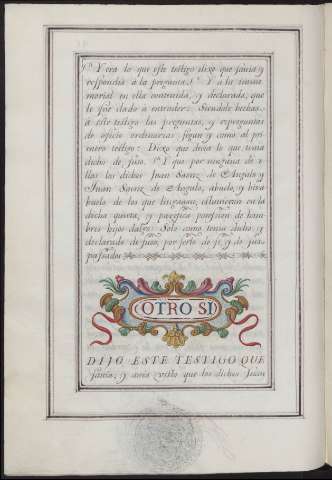 Y era lo que este testigo dixo que sauia, y
respondia á la pregunta. Y a la
marial en ella contenida, y declarada, que
le fue dado á entender: Siendole hechas
á este testigo las preguntas, y repreguntas
de oficio ordinarias segun y como al pri
mero testigo: Dixo que decia lo que tenia
dicho de suso. Y que por ninguna de e
llas los dichos Juan Saenz de Angulo y
Juan Saenz de Angulo, abuelo, y bisa
buelo de los que litigauan, estuuieron en la
dicha quieta, y pacifica possesion de hom
bres hijos dalgo: Solo como tenia dicho, y
declarado de suso, por serlo de si, y de sus
passados
OTRO SI
DIJO ESTE TESTIGO QUE
sauia, y auia visto que los dichos Juan